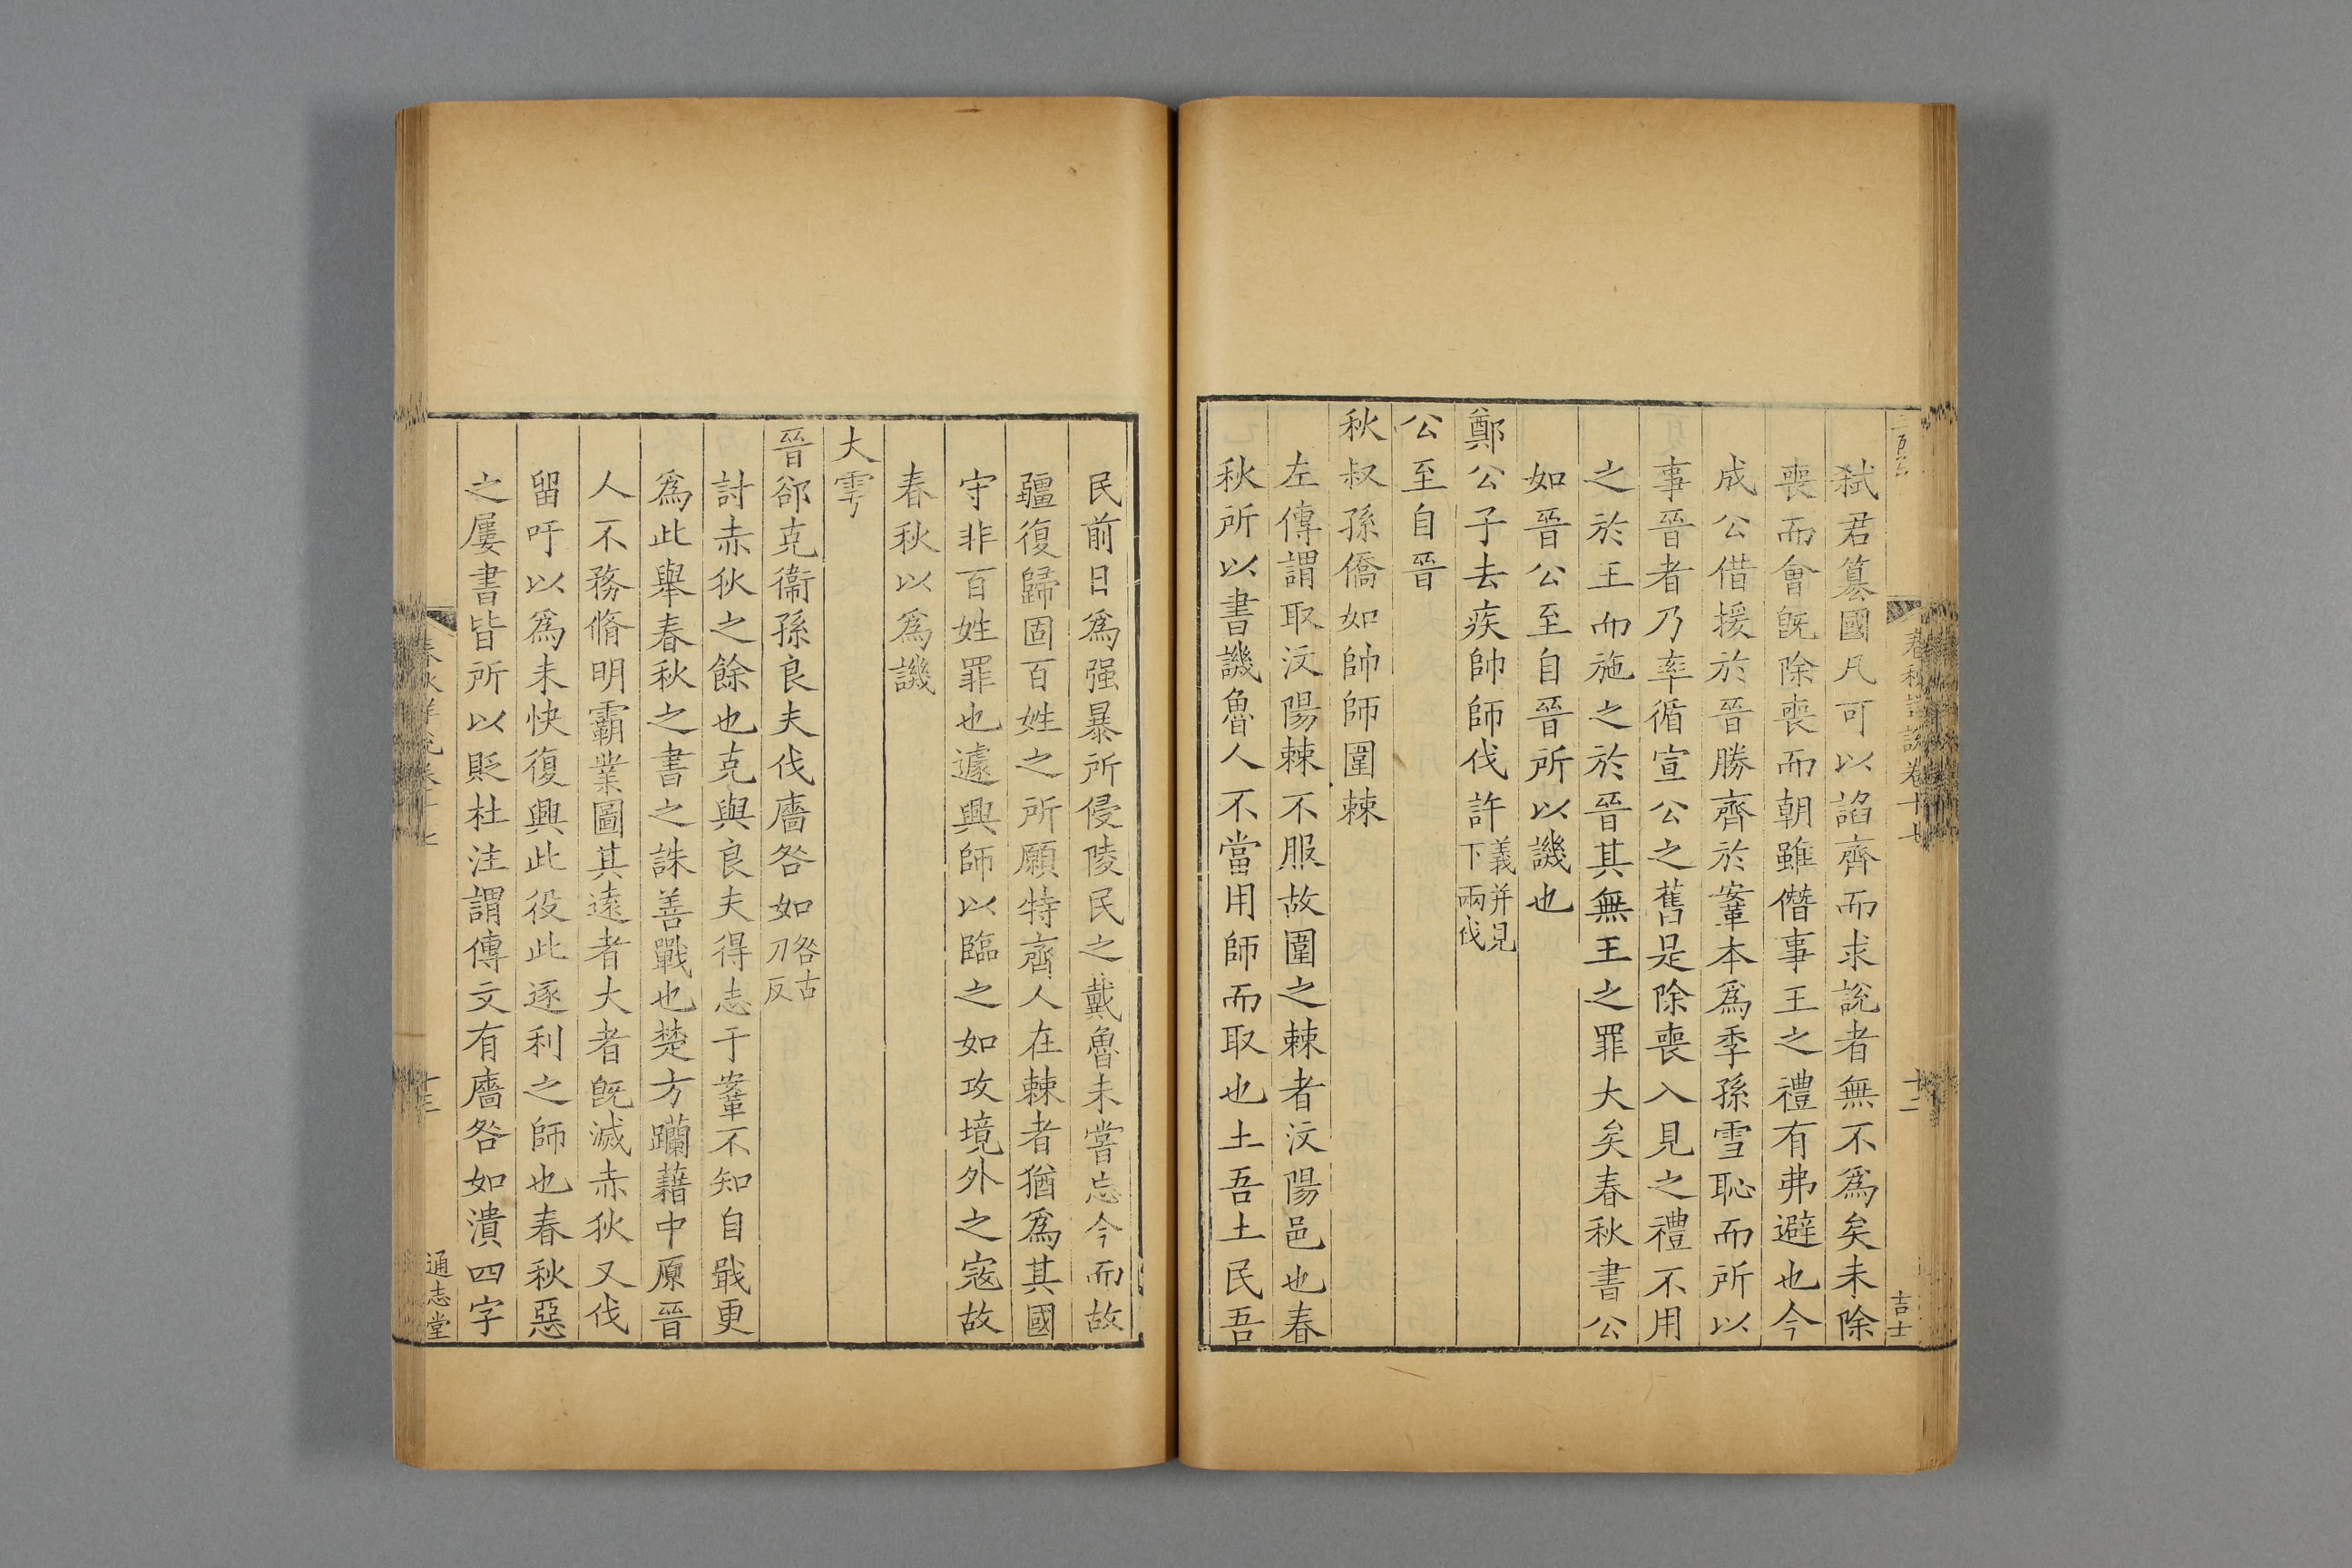 春秋詳說卷十七
十二
吉士
弒君簒國凡可以諂齊而求說者無不爲矣未除
喪而會旣除喪而朝雖僭事王之禮有弗避也今
成公借援於晉勝齊於鞌本爲季孫雪恥而所以
事晉者乃率循宣公之舊是除喪入見之禮不用
之於王而施之於晉其無王之罪大矣春秋書公
如晉公至自晉所以譏也
鄭公子去疾帥師伐許義并見下兩伐
公至自晉
秋叔孫僑如帥師圍棘
左傳謂取汶陽棘不服故圍之棘者汶陽邑也春
秋所以書譏魯人不當用師而取也土吾土民吾
民前日爲强暴所侵陵民之戴魯未嘗忘今而故
疆復歸固百姓之所願特齊人在棘者猶爲其國
守非百姓罪也遽興師以臨之如攻境外之寇故
春秋以爲譏
大雩
晉郤克衞孫良夫伐廧咎如咎古刀反
討赤狄之餘也克與良夫得志于鞌不知自戢更
爲此舉春秋之書之誅善戰也楚方躪藉中原晉
人不務脩明霸業圖其遠者大者旣滅赤狄又伐
留吁以爲未快復興此役此逐利之師也春秋惡
之屢書皆所以貶杜注謂傳文有廧咎如潰四字
春秋詳說卷十七
十三
通志堂